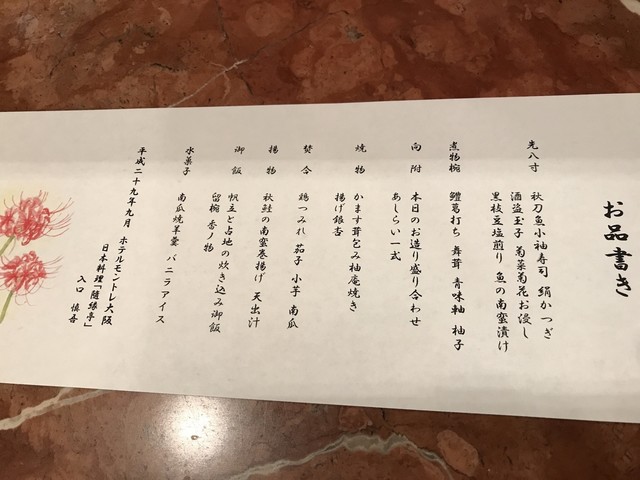 お品書き
先八寸　秋刀魚小袖寿司　絹かつぎ
酒盗玉子　菊菜菊花お浸し
黒枝豆塩煎り　魚の南蛮漬け
煮物椀　鱧葛打ち　舞茸　青味　軸　柚子
向附　本日のお造り盛り合わせ
あしらい一式
焼物　かます茸包み柚庵焼き
揚げ銀杏
焚合　鶏つみれ　茄子　小芋　南瓜
揚物　秋鮭の南蛮巻揚げ　天出汁
御飯　帆立と占地の炊き込み御飯
留椀　香ノ物
水菓子　南瓜焼羊羹　バニラアイス
平成二十九年九月　ホテルモントレ大阪
日本料理「隨縁亭」
入口　慎吾